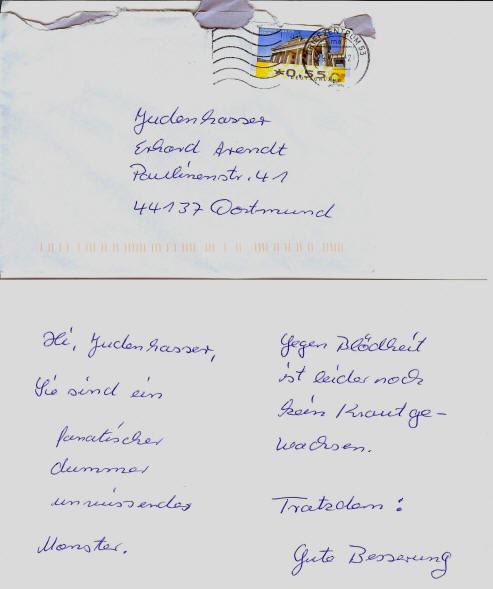 ZENTRUM 53
*0,55
DEUTSCHLAND
Judenhasser
Erhard Arendt
Paulinenstr. 41
44137 Dortmund
Hi, Judenhasser,
Sie sind ein
fanatischer
dummer
unwissendes
Monster.
Gegen Blödheit
ist leider noch
kein Kraut ge-
wachsen.
Trotzdem:
Gute Besserung